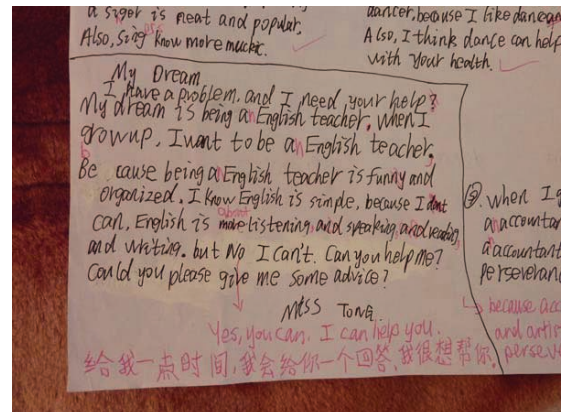 a singer is neat and popular.
Also, sing know more muckic.
dancer, because I like dance an
Also, I think dance can help
with your health.
My Dream
I have a problem. and I need your help?
My dream is being an English teacher. when I
grow up, I want to be an English teacher,
Be cause being a English teacher is funny and
organized. I know English is simple, because I don't
can, English is about listening, and speaking, and reading,
and writing. but No I can't. Can you help me?
Could you please give me some advice?
MISS TONG
Yes, you can. I can help you.
给我一点时间,我会给你一个回答,我很想帮你.
when I g
an accountan
a accountant
perseveran
because acc
and artis
persev